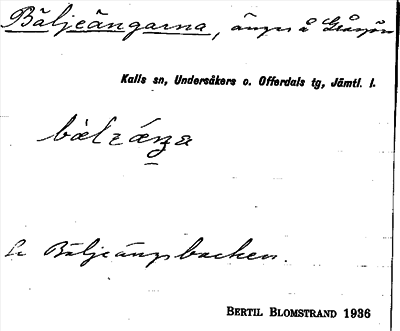 Bäljeängarna, ängar å Gråsjön
Kalls sn, Undersåkers o. Offerdals tg, Jämtl. l.
Se Bäljeängsbacken.
BERTIL BLOMSTRAND 1936